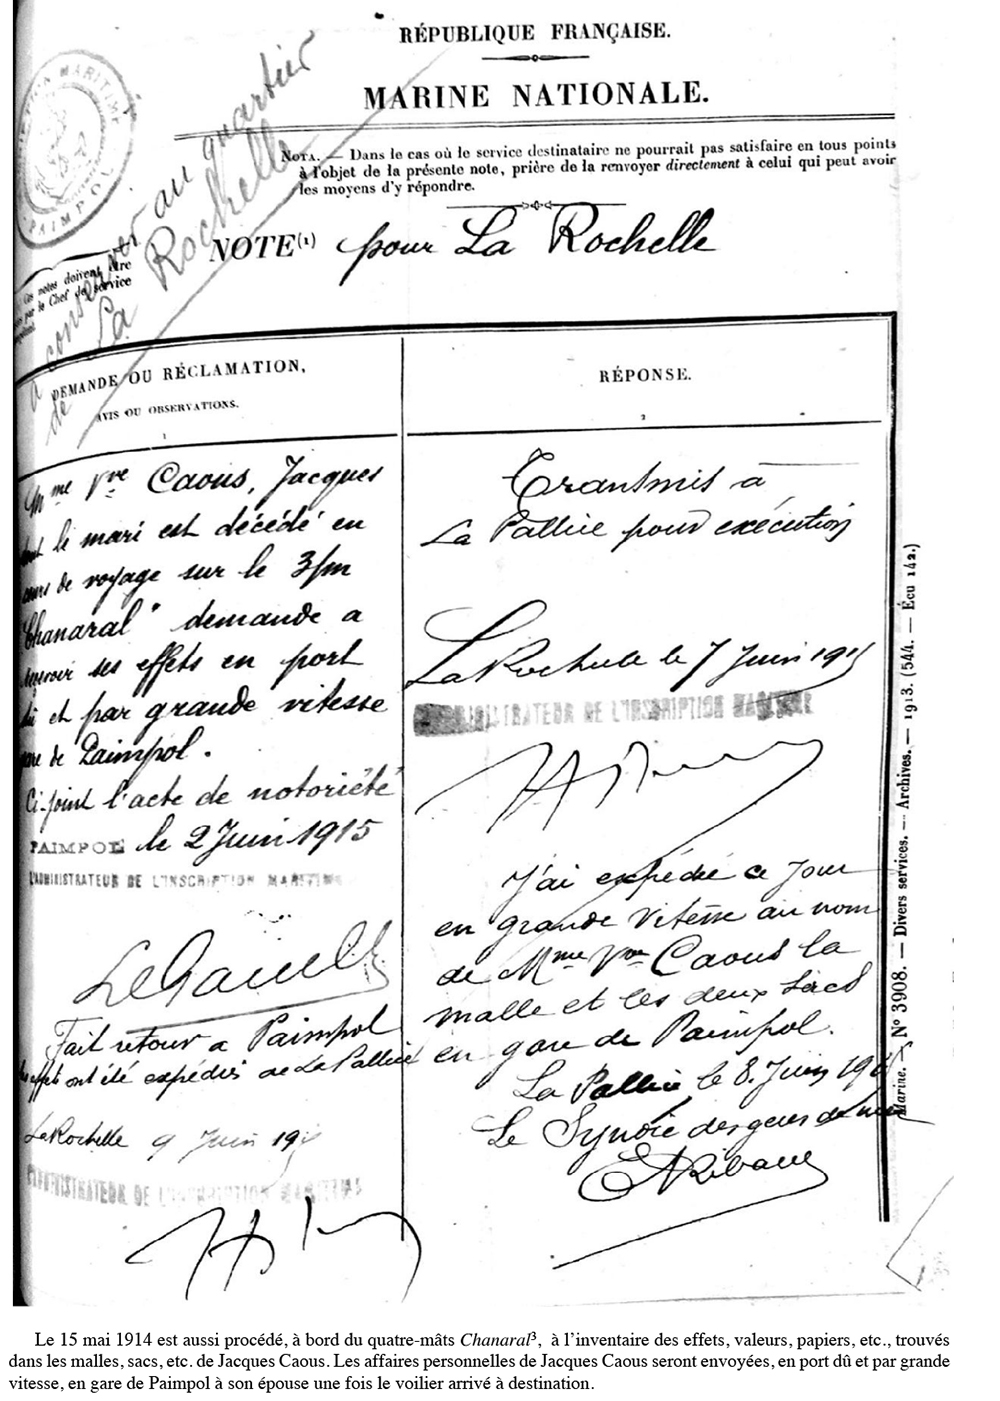 RÉPUBLIQUE FRANÇAISE.
MARINE NATIONALE.
NOTA. — Dans le cas où le service destinataire ne pourrait pas satisfaire en tous points
à l'objet de la présente note, prière de la renvoyer directement à celui qui peut avoir
les moyens d'y répondre.
PAIMPOL
a conserver au quartier
de La Rochelle
NOTE(1) pour La Rochelle
notes doivent être
par le Chef de service
DEMANDE OU RÉCLAMATION,
AVIS OU OBSERVATIONS.
1
Mme Vve Caous, Jacques
dont le mari est décédé en
cours de voyage sur le 3/m
"Chanaral" demande a
recevoir ses effets en port
dû et par grande vitesse
gare de Paimpol.
Ci-joint l'acte de notoriété
PAIMPOL le 2 Juin 1915
L'ADMINISTRATEUR DE L'INSCRIPTION MARITIME
Fait retour a Paimpol
les effets ont été expédiés de La Pallice
La Rochelle 9 Juin 191
L'ADMINISTRATEUR DE L'INSCRIPTION MARITIME
RÉPONSE.
2
Transmis à
La Pallice pour exécution
La Rochelle le 7 Juin 1915
L'ADMINISTRATEUR DE L'INSCRIPTION MARITIME
J'ai expédié ce jour
en grande vitesse au nom
de Mme Vve Caous la
malle et les deux sacs
en gare de Paimpol.
La Pallice le 8 Juin 191
Le Syndic des gens de mer
Marine. N° 3908. — Divers services. — Archives. — 1913. (544. — Écu 142.)
Le 15 mai 1914 est aussi procédé, à bord du quatre-mâts Chanaral³, à l'inventaire des effets, valeurs, papiers, etc., trouvés
dans les malles, sacs, etc. de Jacques Caous. Les affaires personnelles de Jacques Caous seront envoyées, en port dû et par grande
vitesse, en gare de Paimpol à son épouse une fois le voilier arrivé à destination.